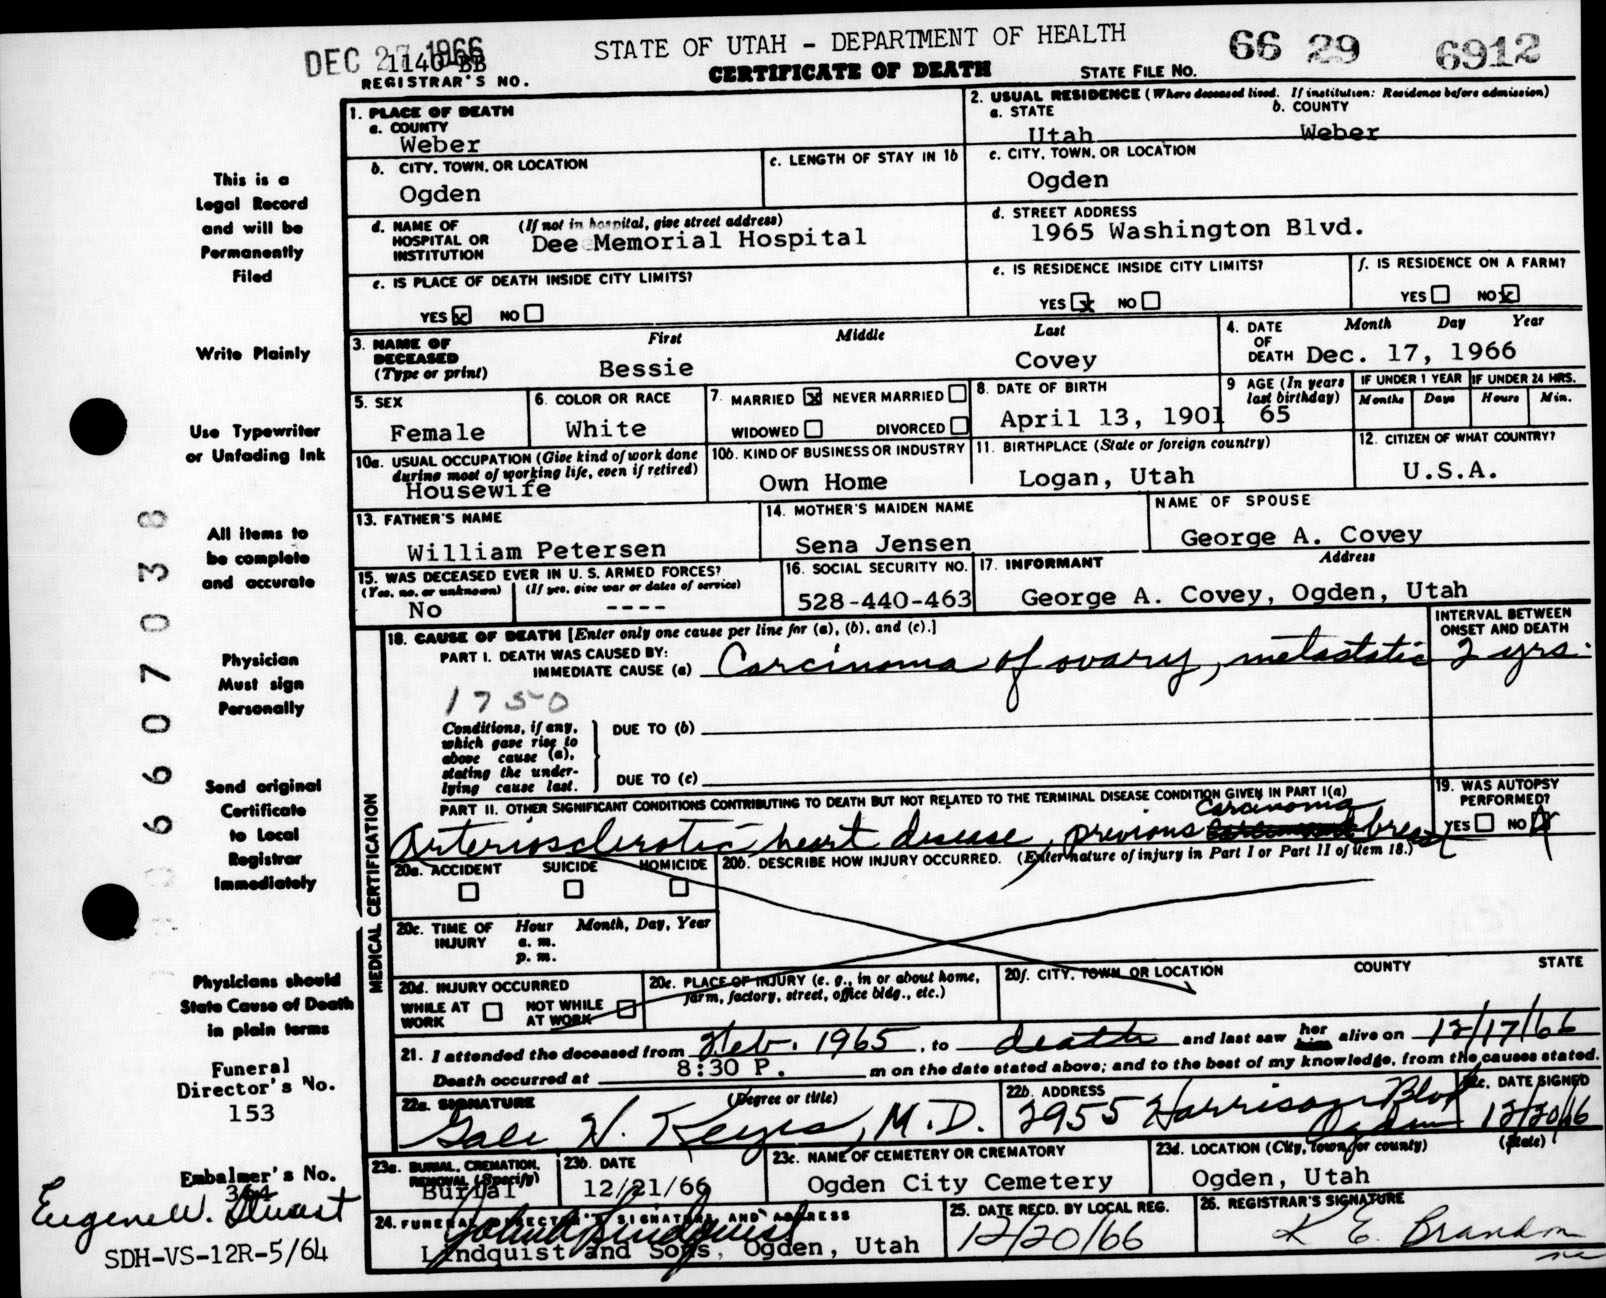 DEC 27 1966
1140 BB
REGISTRAR'S NO.
STATE OF UTAH - DEPARTMENT OF HEALTH
CERTIFICATE OF DEATH
STATE FILE NO.
66 29 6912
This is a
Legal Record
and will be
Permanently
Filed
Write Plainly
Use Typewriter
or Unfading Ink
All items to
be complete
and accurate
Physician
Must sign
Personally
Send original
Certificate
to Local
Registrar
Immediately
Physicians should
State Cause of Death
in plain terms
Funeral
Director's No.
153
Embalmer's No.
Eugene W. Stuart
SDH-VS-12R-5/64
6607038
1. PLACE OF DEATH
a. COUNTY
Weber
2. USUAL RESIDENCE (Where deceased lived. If institution: Residence before admission)
a. STATE
Utah
b. COUNTY
Weber
b. CITY, TOWN, OR LOCATION
Ogden
c. LENGTH OF STAY IN 1b
c. CITY, TOWN, OR LOCATION
Ogden
d. NAME OF HOSPITAL OR INSTITUTION
(If not in hospital, give street address)
Dee Memorial Hospital
d. STREET ADDRESS
1965 Washington Blvd.
e. IS PLACE OF DEATH INSIDE CITY LIMITS?
YES x NO
e. IS RESIDENCE INSIDE CITY LIMITS?
YES x NO
f. IS RESIDENCE ON A FARM?
YES NO x
3. NAME OF DECEASED
(Type or print)
First Middle Last
Bessie Covey
4. DATE OF DEATH
Month Day Year
Dec. 17, 1966
5. SEX
Female
6. COLOR OR RACE
White
7. MARRIED x NEVER MARRIED
WIDOWED DIVORCED
8. DATE OF BIRTH
April 13, 1901
9 AGE (In years last birthday)
65
IF UNDER 1 YEAR
Months Days
IF UNDER 24 HRS.
Hours Min.
10a. USUAL OCCUPATION (Give kind of work done during most of working life, even if retired)
Housewife
10b. KIND OF BUSINESS OR INDUSTRY
Own Home
11. BIRTHPLACE (State or foreign country)
Logan, Utah
12. CITIZEN OF WHAT COUNTRY?
U.S.A.
13. FATHER'S NAME
William Petersen
14. MOTHER'S MAIDEN NAME
Sena Jensen
NAME OF SPOUSE
George A. Covey
15. WAS DECEASED EVER IN U. S. ARMED FORCES?
(Yes, no, or unknown) (If yes, give war or dates of service)
No ----
16. SOCIAL SECURITY NO.
528-440-463
17. INFORMANT Address
George A. Covey, Ogden, Utah
MEDICAL CERTIFICATION
18. CAUSE OF DEATH [Enter only one cause per line for (a), (b), and (c).]
INTERVAL BETWEEN ONSET AND DEATH
PART I. DEATH WAS CAUSED BY:
IMMEDIATE CAUSE (a) Carcinoma of ovary, metastatic 2 yrs.
1750
Conditions, if any, which gave rise to above cause (a), stating the underlying cause last.
DUE TO (b)
DUE TO (c)
PART II. OTHER SIGNIFICANT CONDITIONS CONTRIBUTING TO DEATH BUT NOT RELATED TO THE TERMINAL DISEASE CONDITION GIVEN IN PART I(a)
Arteriosclerotic heart disease, previous Carcinoma breast
19. WAS AUTOPSY PERFORMED?
YES NO x
20a. ACCIDENT SUICIDE HOMICIDE
20b. DESCRIBE HOW INJURY OCCURRED. (Enter nature of injury in Part I or Part II of item 18.)
20c. TIME OF INJURY Hour Month, Day, Year
a. m.
p. m.
20d. INJURY OCCURRED
WHILE AT WORK NOT WHILE AT WORK
20e. PLACE OF INJURY (e. g., in or about home, farm, factory, street, office bldg., etc.)
20f. CITY, TOWN, OR LOCATION COUNTY STATE
21. I attended the deceased from Feb. 1965, to death and last saw her him alive on 12/17/66
Death occurred at 8:30 P. m on the date stated above; and to the best of my knowledge, from the causes stated.
22a. SIGNATURE (Degree or title)
Gale W. Keyes, M.D.
22b. ADDRESS
2955 Harrison Blvd
Ogden
22c. DATE SIGNED
12/20/66
23a. BURIAL, CREMATION, REMOVAL (Specify)
Burial
23b. DATE
12/21/66
23c. NAME OF CEMETERY OR CREMATORY
Ogden City Cemetery
23d. LOCATION (City, town, or county) (State)
Ogden, Utah
24. FUNERAL DIRECTOR'S SIGNATURE AND ADDRESS
John A Lindquist
Lindquist and Sons, Ogden, Utah
25. DATE RECD. BY LOCAL REG.
12/20/66
26. REGISTRAR'S SIGNATURE
K E. Brandon